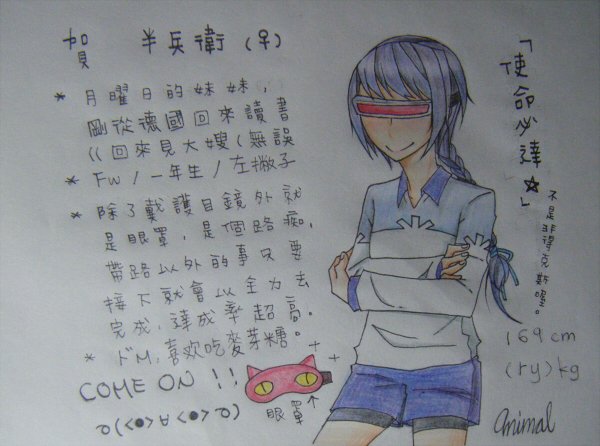 賀 半兵衛(♀)
* 月曜日的妹妹,
剛從德國回來讀書
((回來見大嫂(無誤
* FW/一年生/左撇子
* 除了戴護目鏡外就
是眼罩,是個路痴,
帶路以外的事只要
接下就會以全力去
完成,達成率超高。
* ドM,喜欢吃麥芽糖。
COME ON !!
眼罩
「使命必達☆」
不是非得克斯喔。
169cm
(ry)kg
Animal